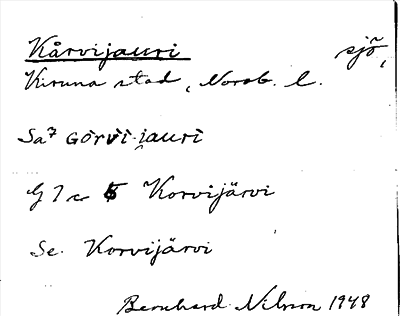 Kårvijauri sjö,
Kiruna stad, Norrb. l.
Sa7 GÒRVI-jAURI
G 7 5 Korvijärvi
Se. Korvijärvi
Bernhard Nilsson 1948